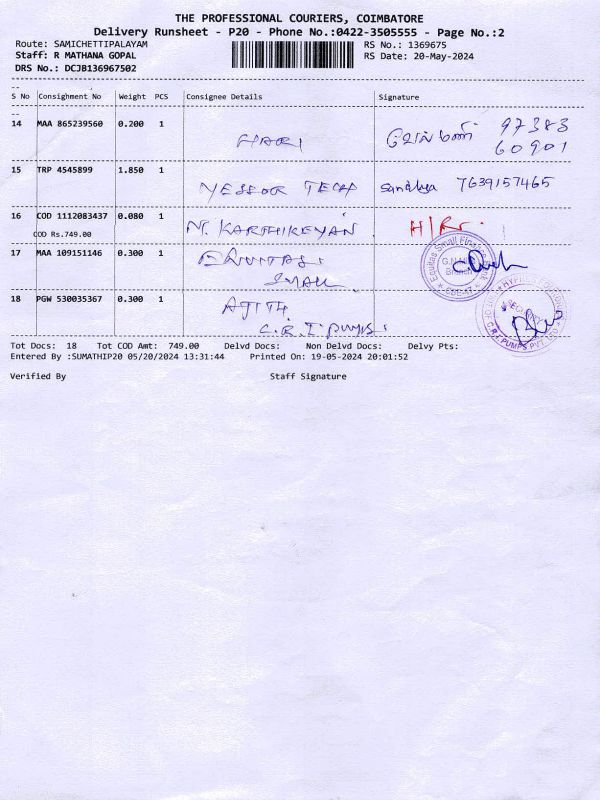 THE PROFESSIONAL COURIERS, COIMBATORE
Delivery Runsheet - P20 - Phone No.:0422-3505555 - Page No.:2
Route: SAMICHETTIPALAYAM
RS No.: 1369675
Staff: R MATHANA GOPAL
RS Date: 20-May-2024
DRS No.: DCJB136967502
S No Consignment No Weight PCS Consignee Details Signature
14 MAA 865239560 0.200 1 HARI 97383
60901
15 TRP 4545899 1.850 1 TECH Sandhya 7639157465
16 COD 1112083437 0.080 1 N. KARTHIKEYAN H/R.
COD Rs.749.00
17 MAA 109151146 0.300 1
Equitas Small Finance
Branch
18 PGW 530035367 0.300 1 AJITH.
C.R.I. PUMPS.
SECURITY
C.R.I. PUMPS PVT LTD
Tot Docs: 18 Tot COD Amt: 749.00 Delvd Docs: Non Delvd Docs: Delvy Pts:
Entered By :SUMATHIP20 05/20/2024 13:31:44 Printed On: 19-05-2024 20:01:52
Verified By Staff Signature